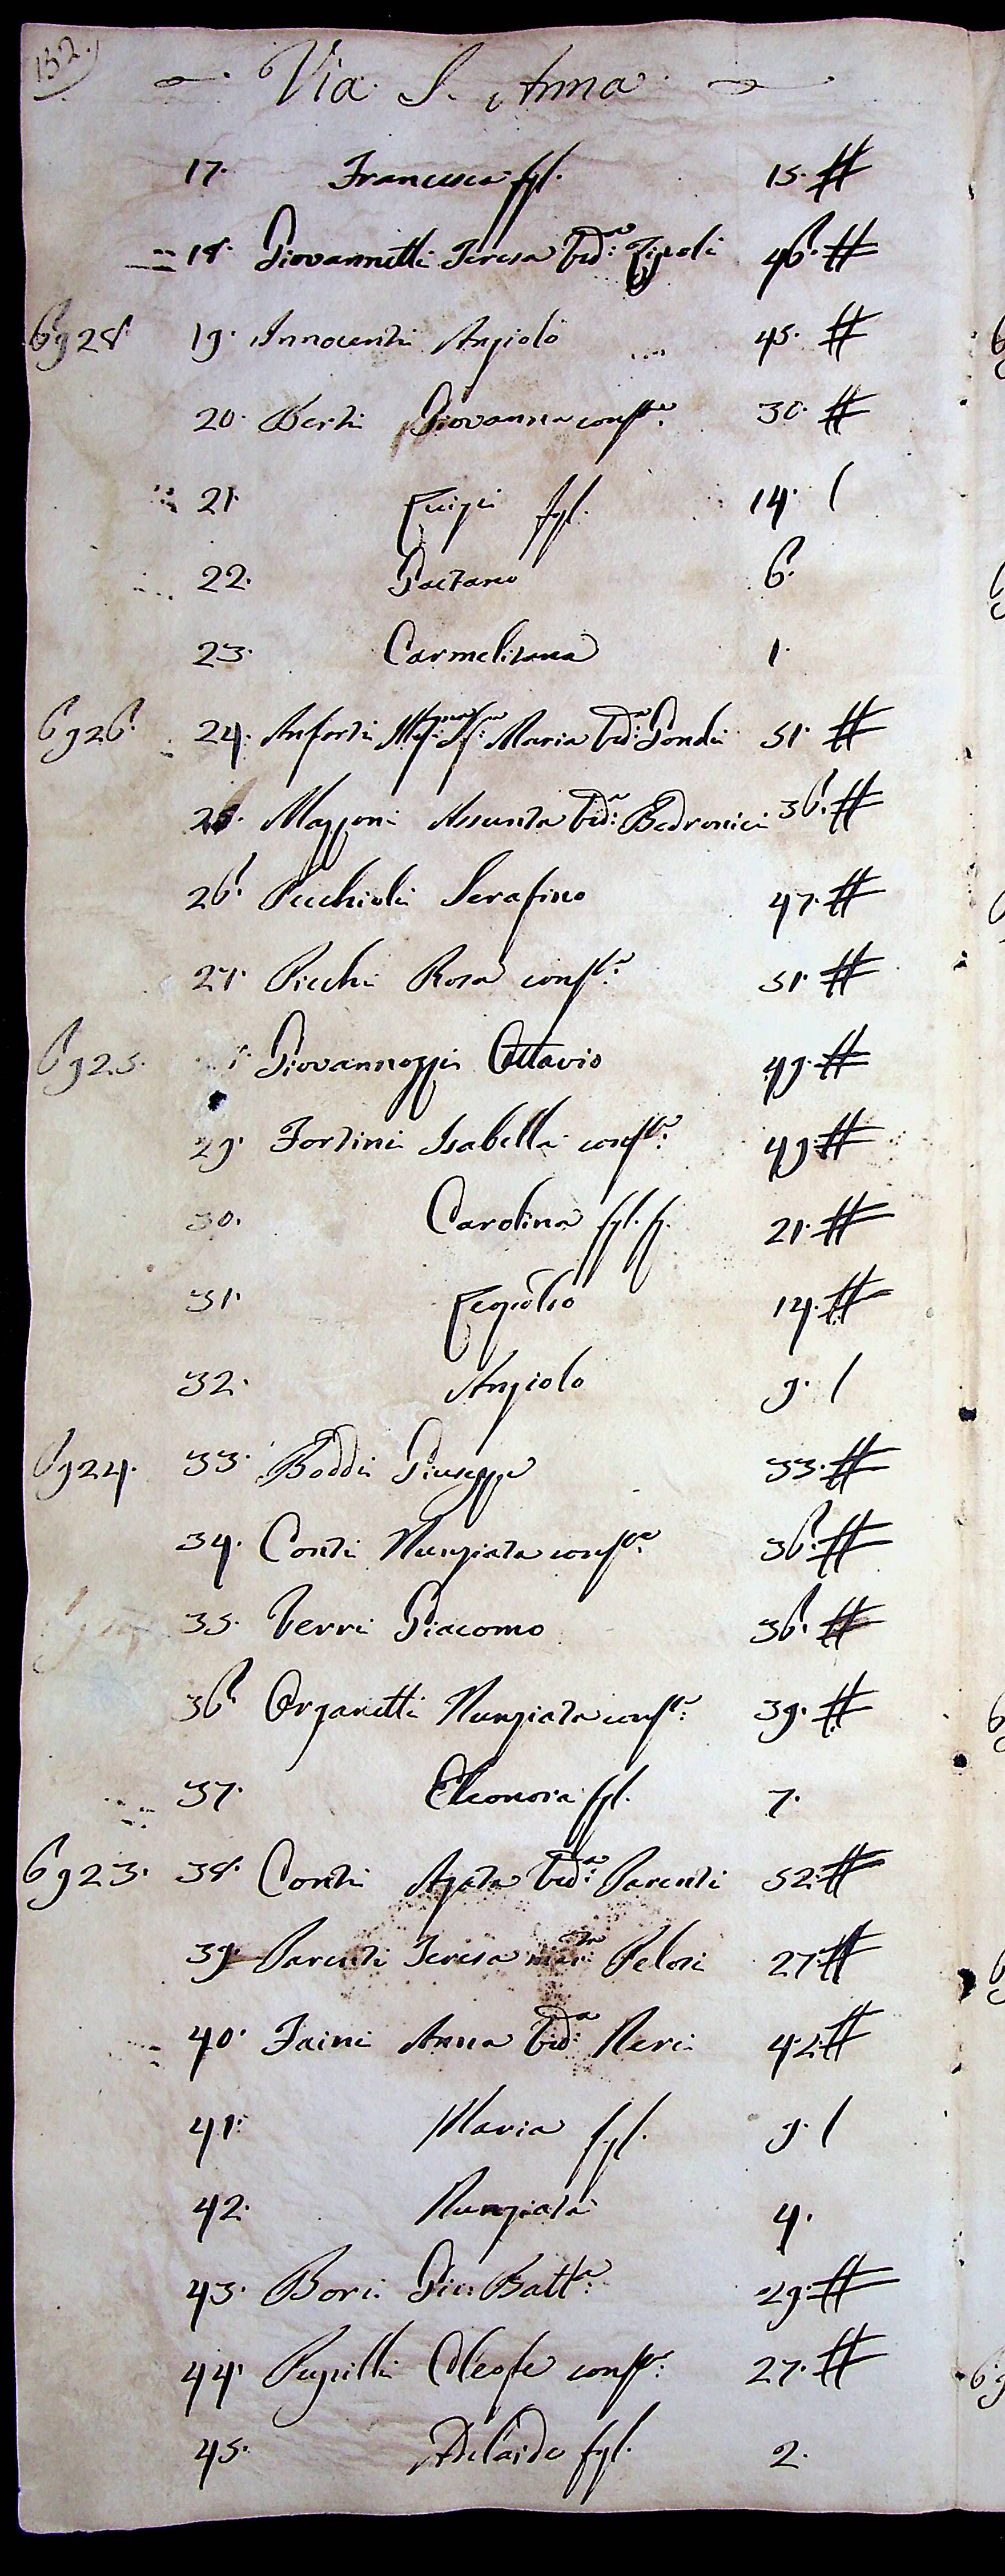 132.
Via S. Anna
17. Francesca fgl. 15. #
18. Giovannetti Teresa Vd:a Zipoli 46. #
6928 19. Innocenti Angiolo 45. #
20. Berti Giovanna consrte: 30. #
21. Luigi fgl. 14. /
22. Gaetano 6.
23. Carmelitana 1.
6926. 24. Anforti Maria Vd:a Gondi 51. #
25. Mazzoni Assunta Vd:a Bedronici 36. #
26. Pecchioli Serafino 47. #
27. Picchi Rosa consrte: 51. #
6925. Giovannozzi Ottavio 49. #
29. Fortini Isabella consrte: 49. #
30. Carolina fgl. f. 21. #
31. 14. #
32. Angiolo 9. /
6924. 33. Boddi Giuseppe 33. #
34. Conti Nunziata consrte: 36. #
35. Verri Giacomo 36. #
36. Organetti Nunziata consrte: 39. #
37. Eleonora fgl. 7.
6923. 38. Conti Agata Ved:a Parenti 52. #
39. Parenti Teresa mar: Pelosi 27. #
40. Faini Anna Vd:a Neri 42. #
41. Maria fgl. 9. /
42. Nunziata 4.
43. Bori Gio: Batta: 29. #
44. Pugilli Cleofe consrte: 27. #
45. Adelaide fgl. 2.